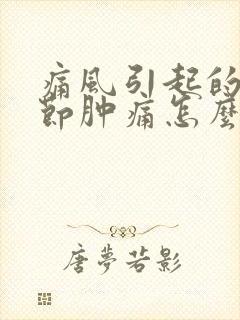 痛风引起的
節肿痛怎麼
唐夢若影